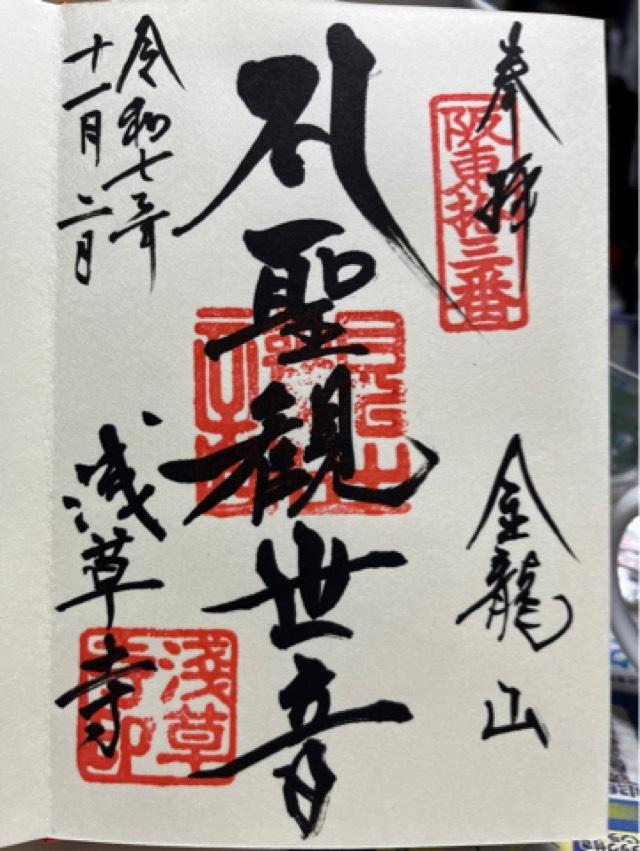 奉拝
阪東拾三番
金龍山
聖観世音
令和七年
十一月二日
浅草寺
淺草寺印